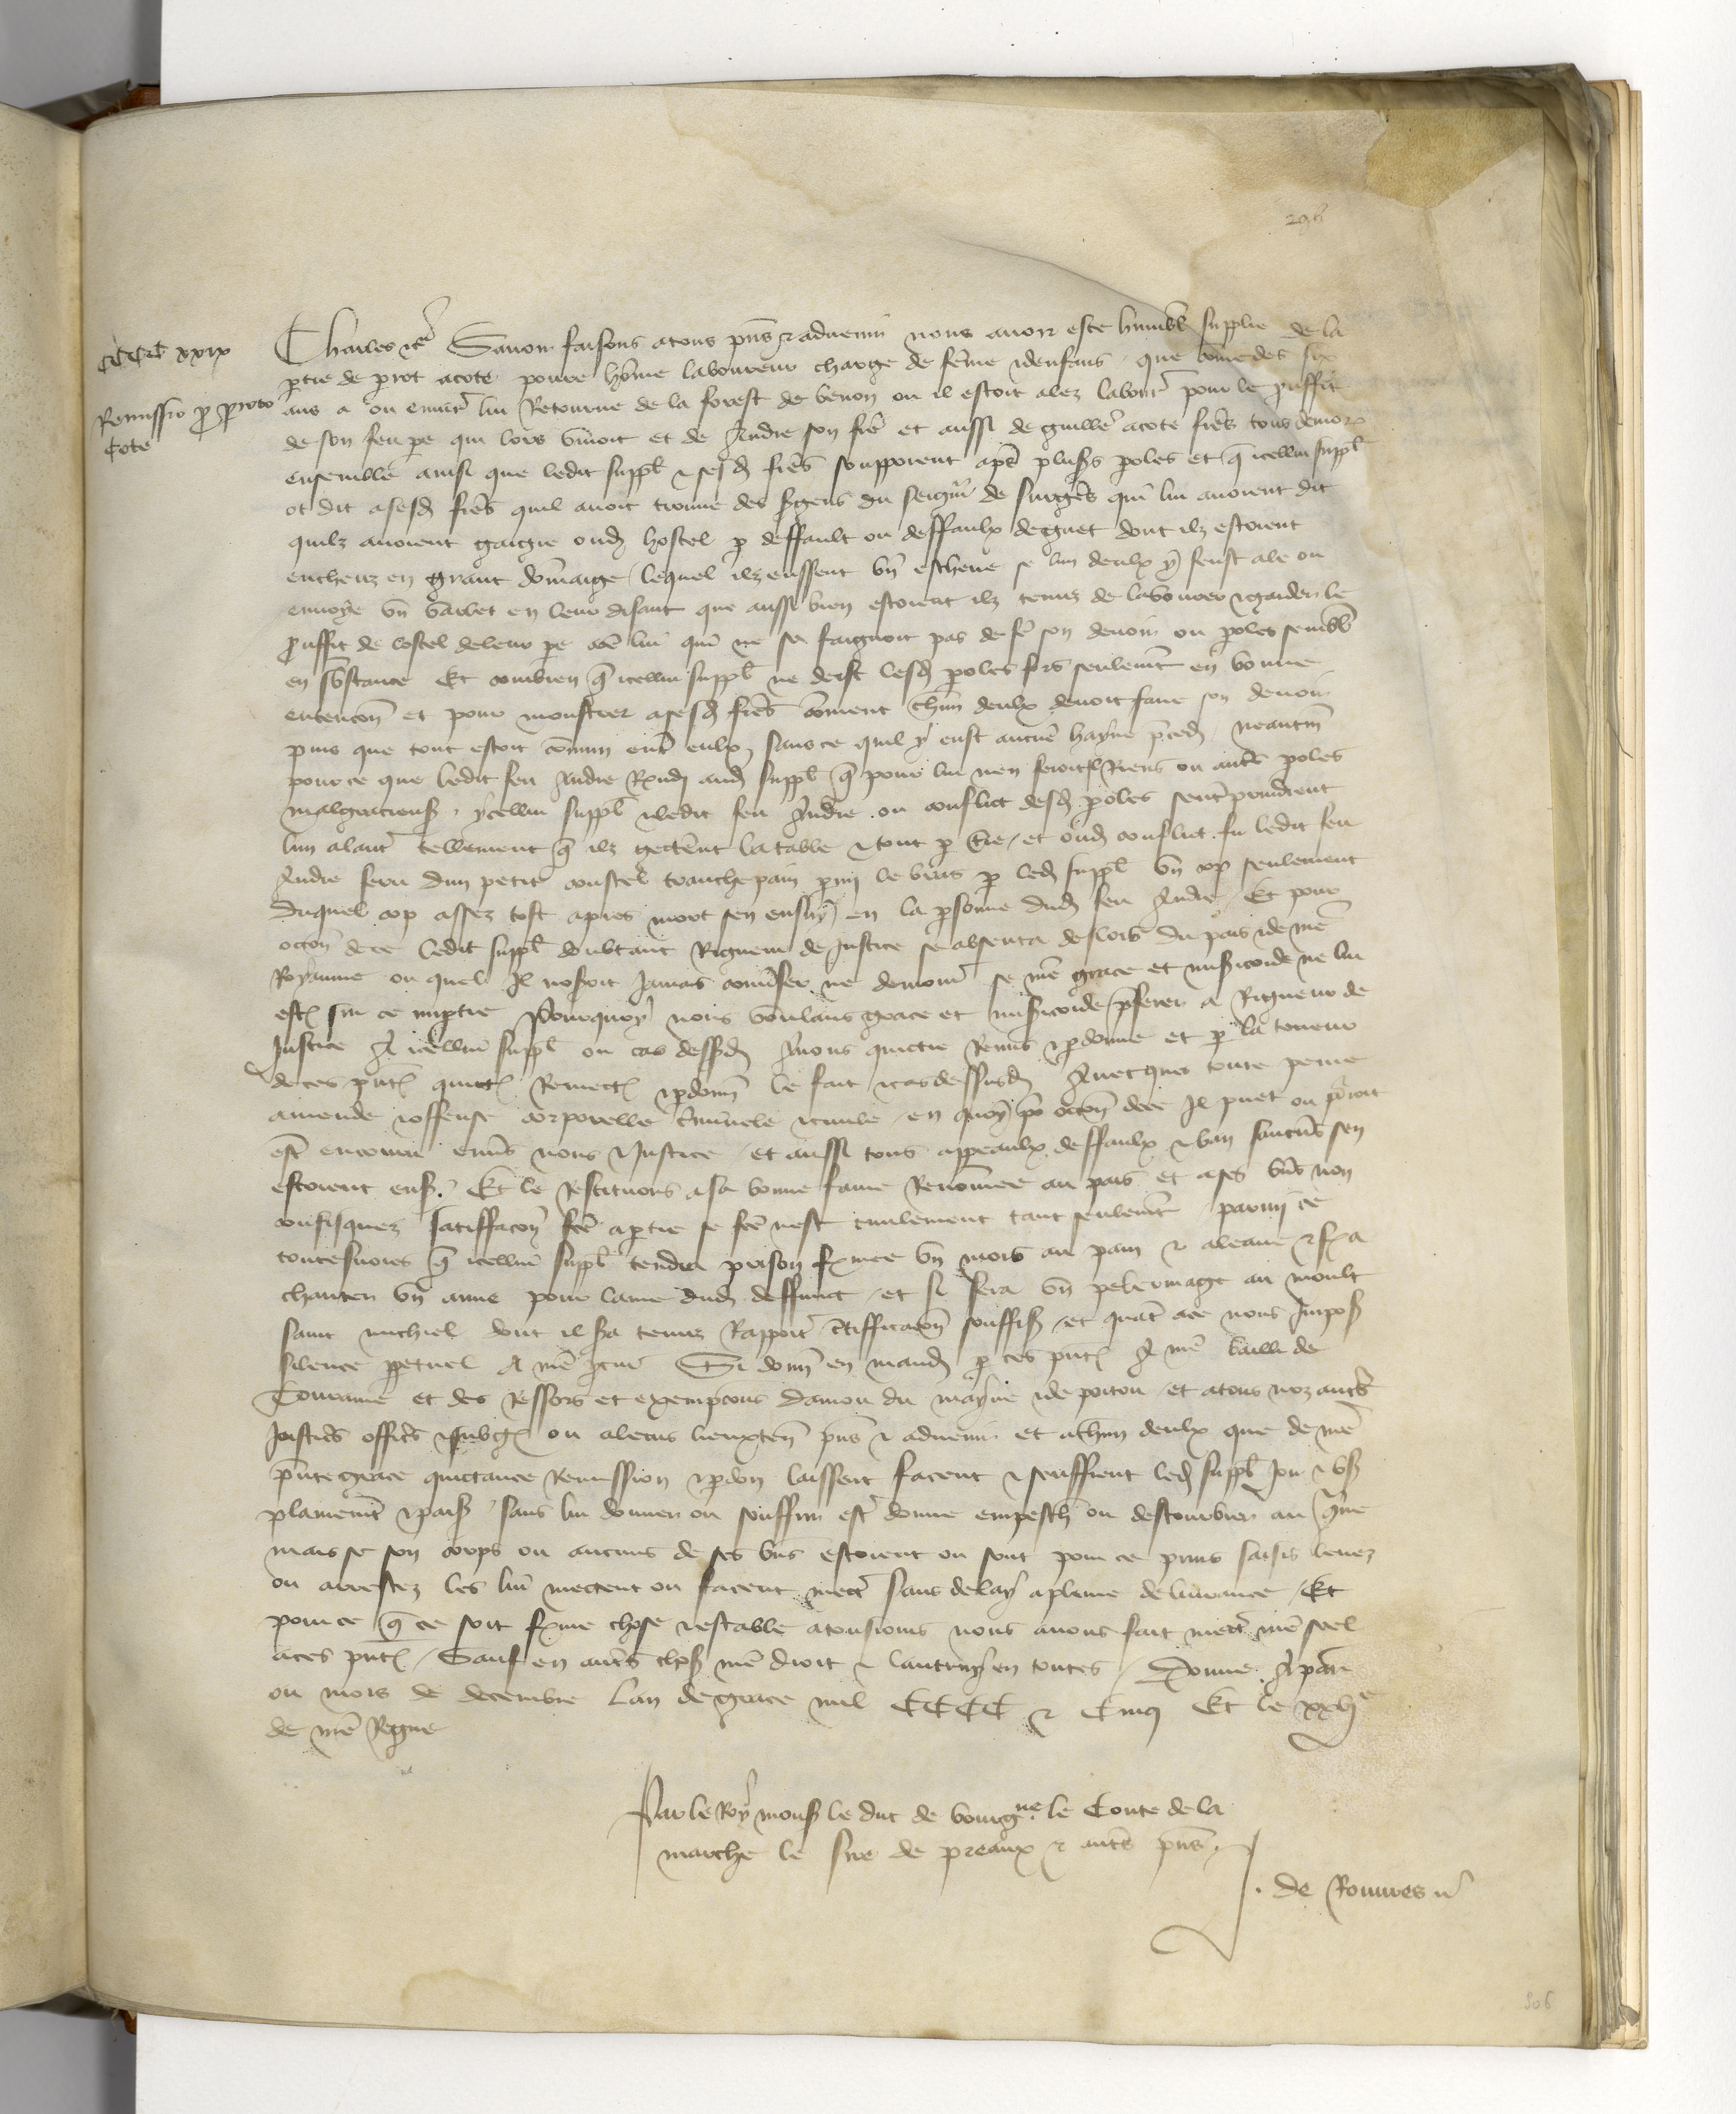 296
CCCC XXIX
Remissio pro Peroto
Cote
Charles etc Savoir faisons a tous pns et advenir nous avoir este humblt supplie de la
ptie de perot acote povre hõme laboureur charge de fẽme et denfans que cõme des six
ans a ou envirõ lui Retourne de la forest de benon ou il estoit alez labourer pour le prouffit
de son feu pe qui lors vivoit et de Andre son fre et aussi de guillẽ acote fres tous demor
ensemble ainsi que ledit suppl et sesd fres soupoient apres plusrs poles et q icellui suppl
ot dit asesd fres quil avoit trouve des sgens du seigneur de surgeres qui lui avoient dit
quilz avoient gaigie oud hostel p deffault ou deffaulx de guet dont ilz estoient
encheuz en grant dõmaige lequel ilz eussent bn escheve se lun deulx y feust ale ou
envoye un varlet en leur disant que aussi bien estoient ilz tenuz de labourer et garder le
prouffit de lostel de leur pe cõe lui qui ne se faignoit pas de fe son devoir ou poles sembl
en substance Et combien q icellui suppl ne deist lesd poles fors seulemt en bonne
entencon et pour monstrer asesd fres cõment chun deulx devoit faire son devoir
puis que tout estoit cõmun entre eulx sans ce quil y eust aucune hayne preced neantm
pour ce que ledit feu Andre Rond aud suppl q pour lui nen feroit Riens ou autres poles
malgracieuses ycellui suppl et ledit feu Andre ou conflict desd poles sentreprindrent
lun alautre tellement q ilz gecterent la table et tout p tre et oud conflict fu ledit feu
Andre feru dun petit coustel tranchepain pmy le bras p led suppl un cop seulement
duquel cop assez tost apres mort sen ensuy en la psonne dud feu Andre Et pour
occon de ce ledit suppl doubtant Rigueur de Justice se absenta deslors du pais et de nre
Royaume ou quel Il noseroit Jamais converser ne demourer se nre grace et misericorde ne lui
est sur ce impartie Pourquoy nous voulans grace et misericorde preferer a Rigueur de
Justice A icellui suppl ou cas dessusd Avons quictie Remis et pdonne et p la teneur
de ces pntes quictons Remectons et pdonn le fait et cas dessusd Avecques toute peine
amende et offense corporelle criminele et civile en quoy p occon de ce Il puet ou pourroit
estre encouru envers nous et Justice et aussi tous appeaulx deffaulx et ban saucuns sen
estoient ensuis Et le Restituons a sa bonne fame Renommee au pais et a ses biens non
confisquez satiffacon fce a ptie se fce nest civilement tant seulement parmy ce
toutesvoies q icellui suppl tendra prison fermee un mois au pain et aleaue et fera
chanter un anne pour lame dud deffunct et si fera un pelerinage au moult
saint michiel dont il sera tenuz Rapporter certifficacon souffis et quant ace nous Imposons
silence perpetuel a nre procur Si donn en mand p ces pntes A nre bailli de
Touraine et des Ressors et exempcons danjou du mayne et de poitou et atous noz autres
Justiciers officiers et subgez ou aleurs lieuxten pns et advenir et achun deulx que de nre
pnte grace quictance Remission et pdon laissent facent et seuffrent led suppl Joir et user
plainemt et paisiblement sans lui donner ou souffrir estre donne empesch ou destourbier au contraire
mais se son corps ou aucuns de ses biens estoient ou sont pour ce prins saisis levez
ou arrestez les lui mectent ou facent mectre sans delay aplaine delivrance Et
pour ce q ce soit ferme chose et estable atousjours nous avons fait mectre nre seel
aces pntes Sauf en autres choses nre droit et lautruy en toutes Donne A paris
ou mois de decembre Lan de grace mil CCCC et Cinq Et le xxvi e
de nre Regne
Par le Roy mons le duc de bourgne le Conte de la
marche le sire de preaux et autres pns
J. de Rouvres
306